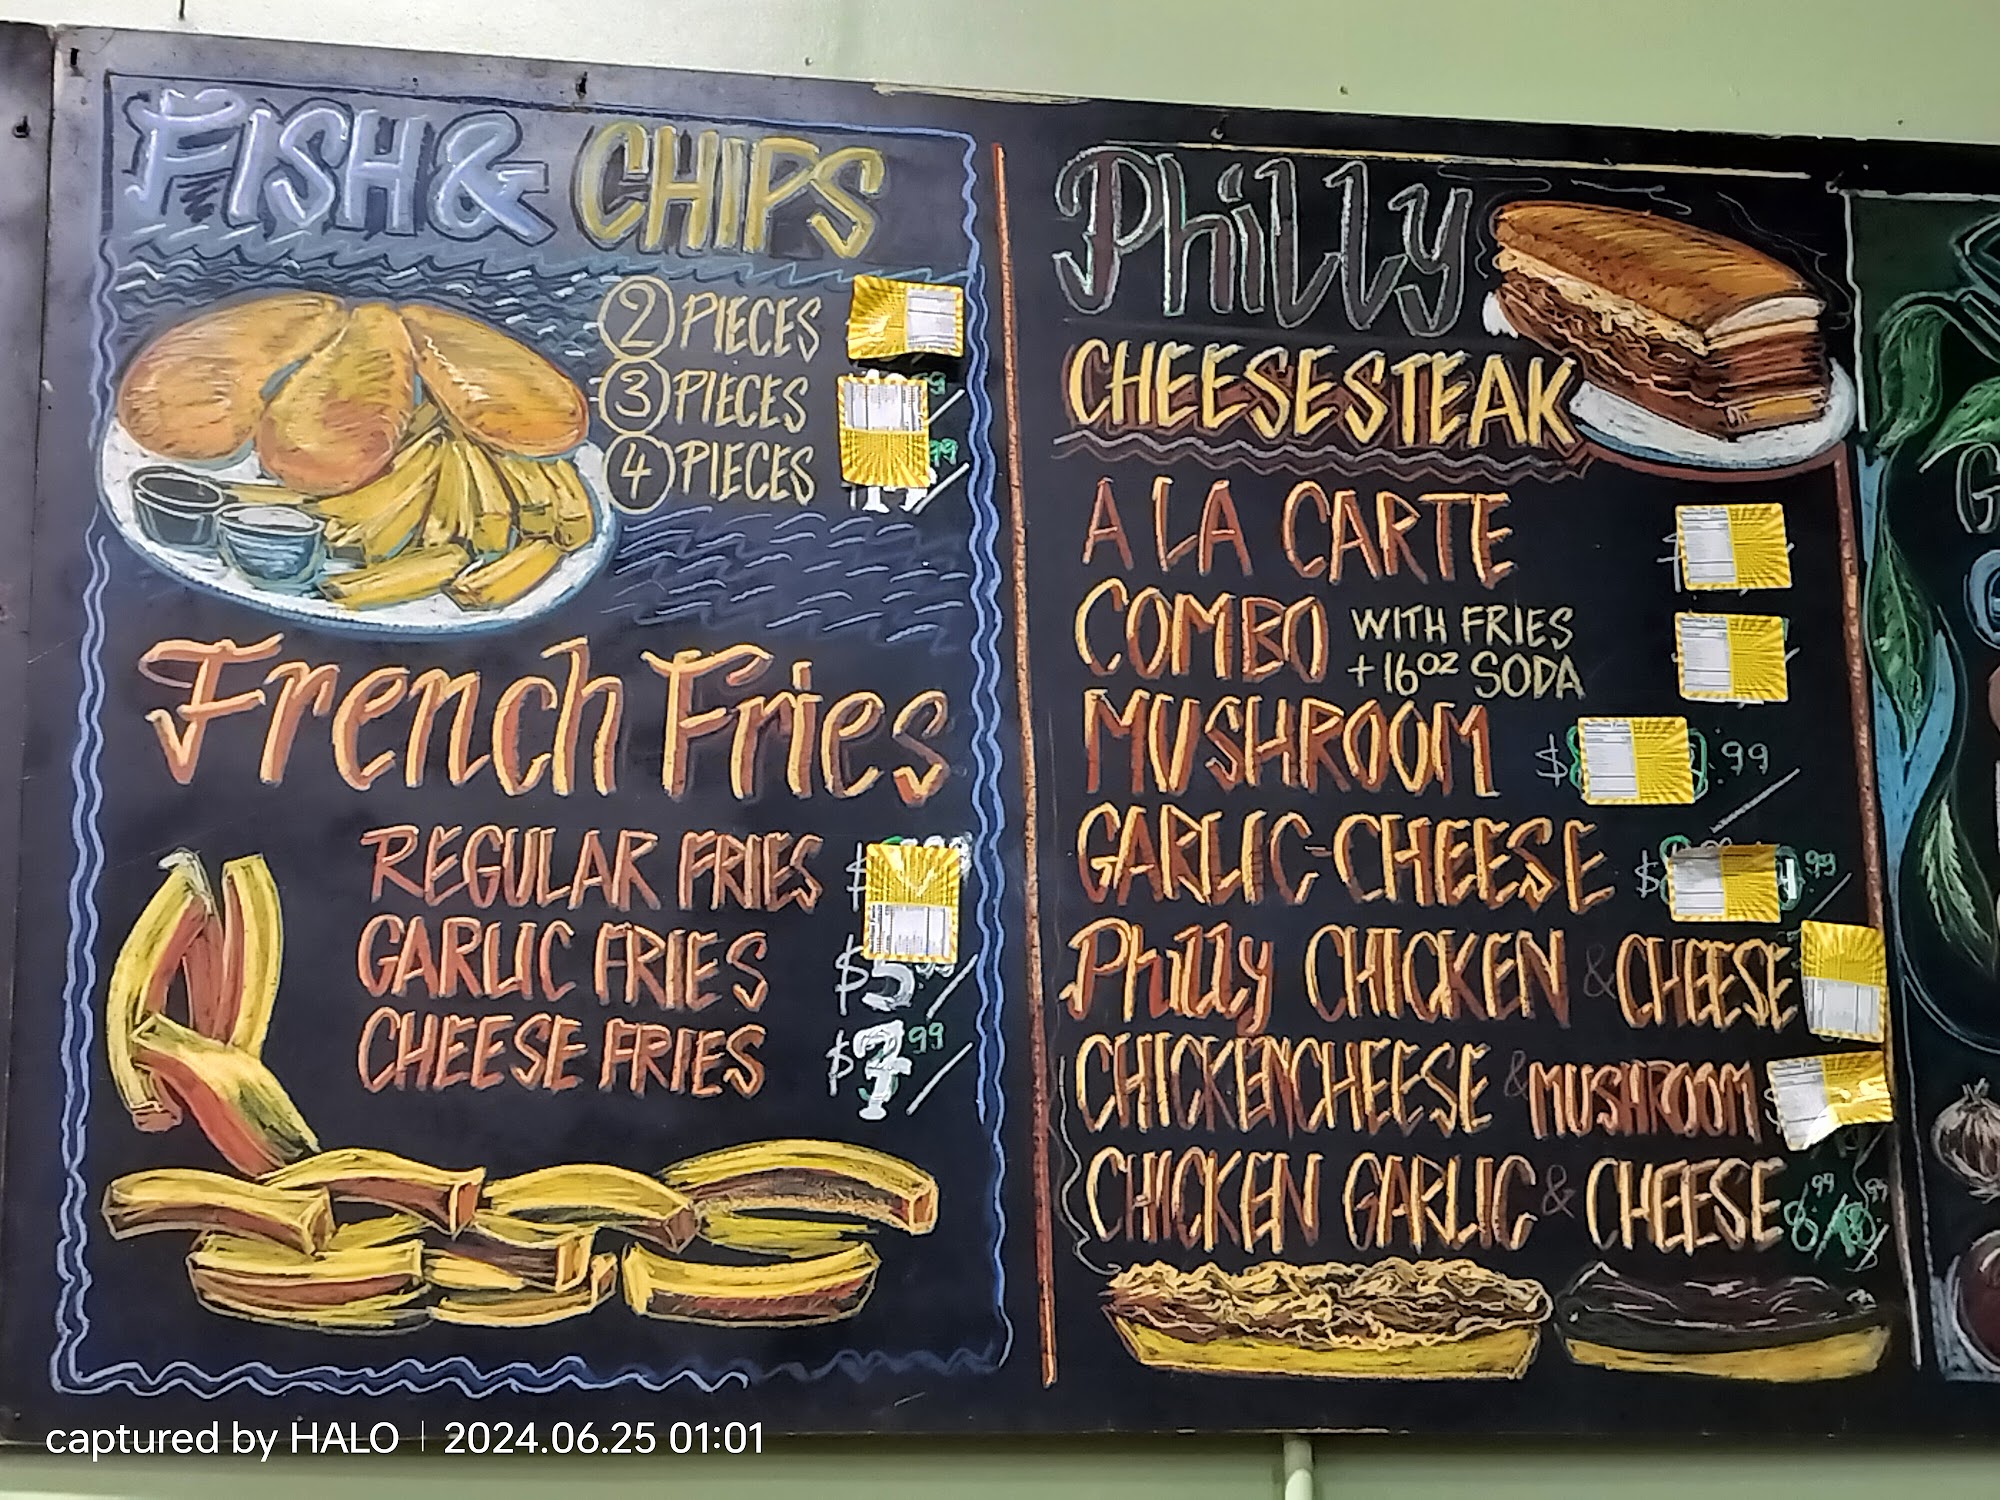 FISH & CHIPS
2 PIECES
3 PIECES
4 PIECES
French Fries
REGULAR FRIES $
GARLIC FRIES $5
CHEESE FRIES $7.99
Philly
CHEESESTEAK
A LA CARTE
COMBO WITH FRIES
+ 16oz SODA
MUSHROOM $ .99
GARLIC-CHEESE $ .99
Philly CHICKEN & CHEESE
CHICKEN CHEESE & MUSHROOM
CHICKEN GARLIC & CHEESE
captured by HALO | 2024.06.25 01:01